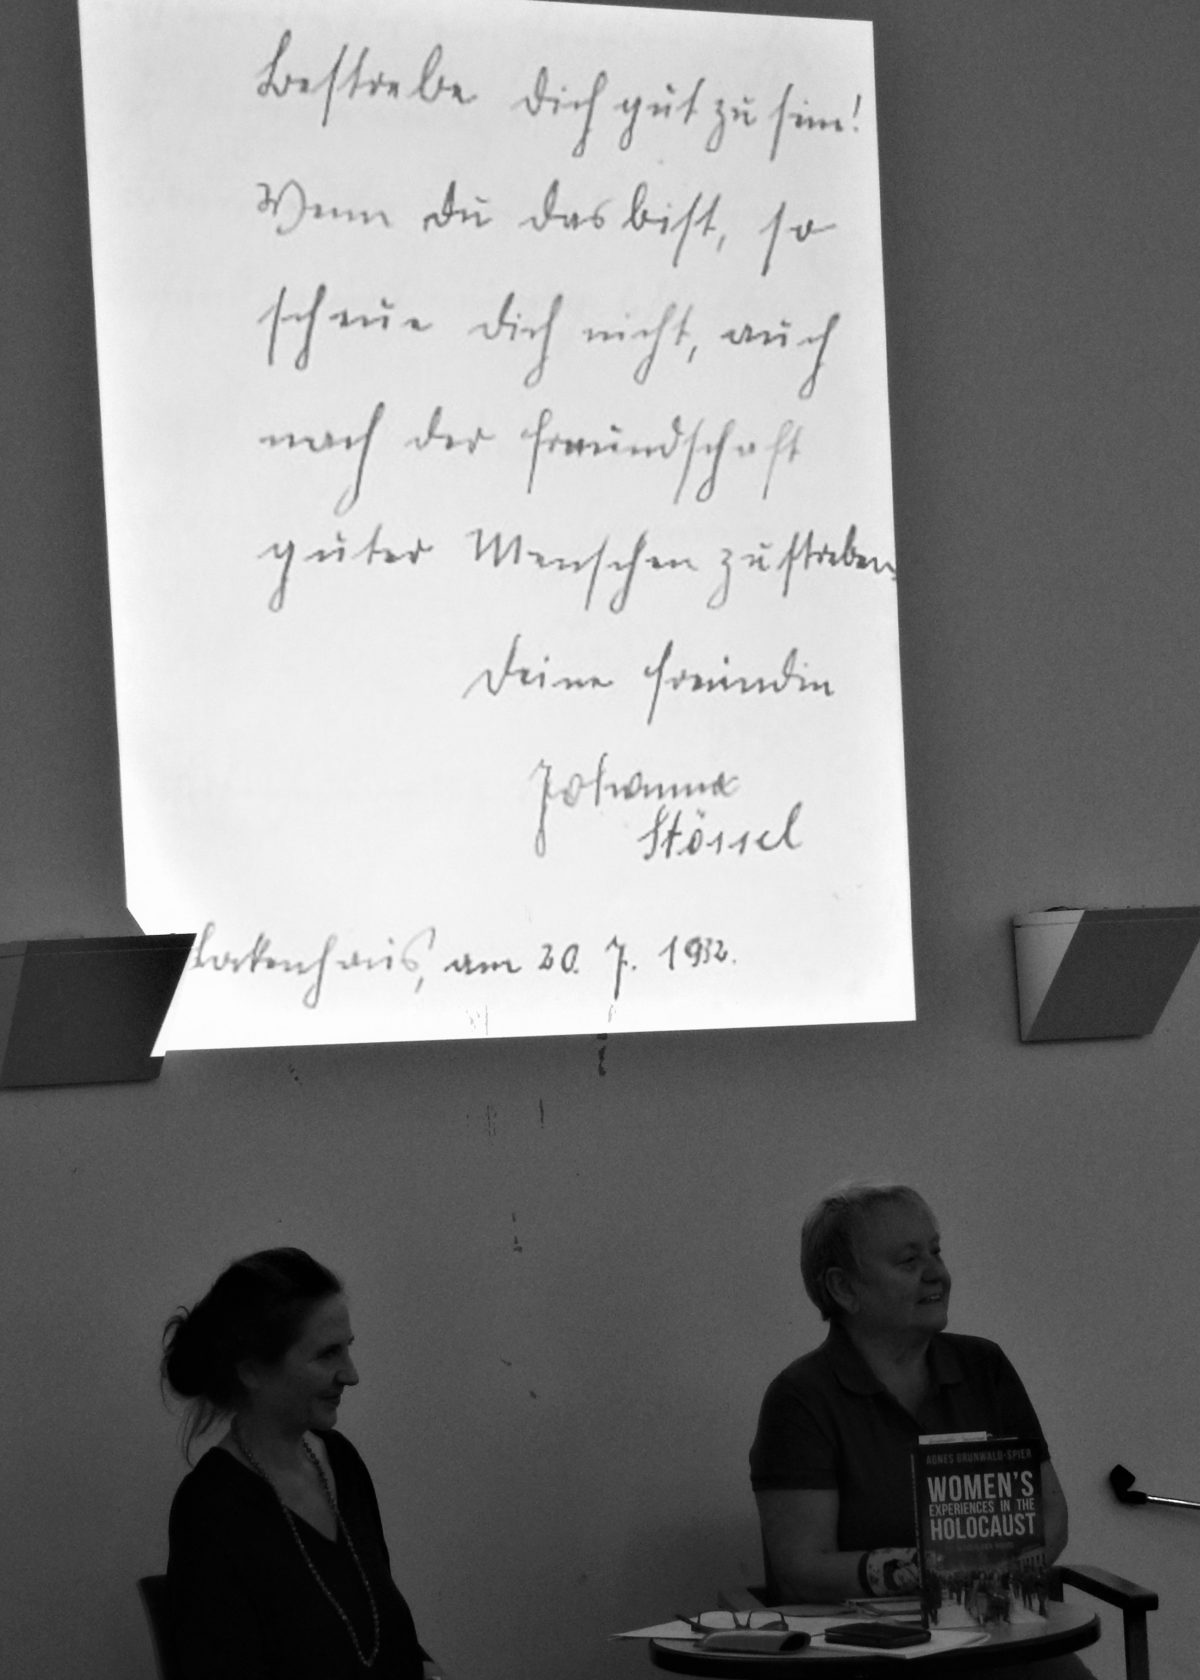 Bestrebe Dich gut zu sein!
Wenn Du das bist, so
scheue Dich nicht, auch
nach der Freundschaft
guter Menschen zu streben.
Deine Freundin
Johanna
Stössel
Lockenhaus, am 20. 7. 1932.
AGNES GRUNWALD-SPIER
WOMEN'S
EXPERIENCES IN THE
HOLOCAUST